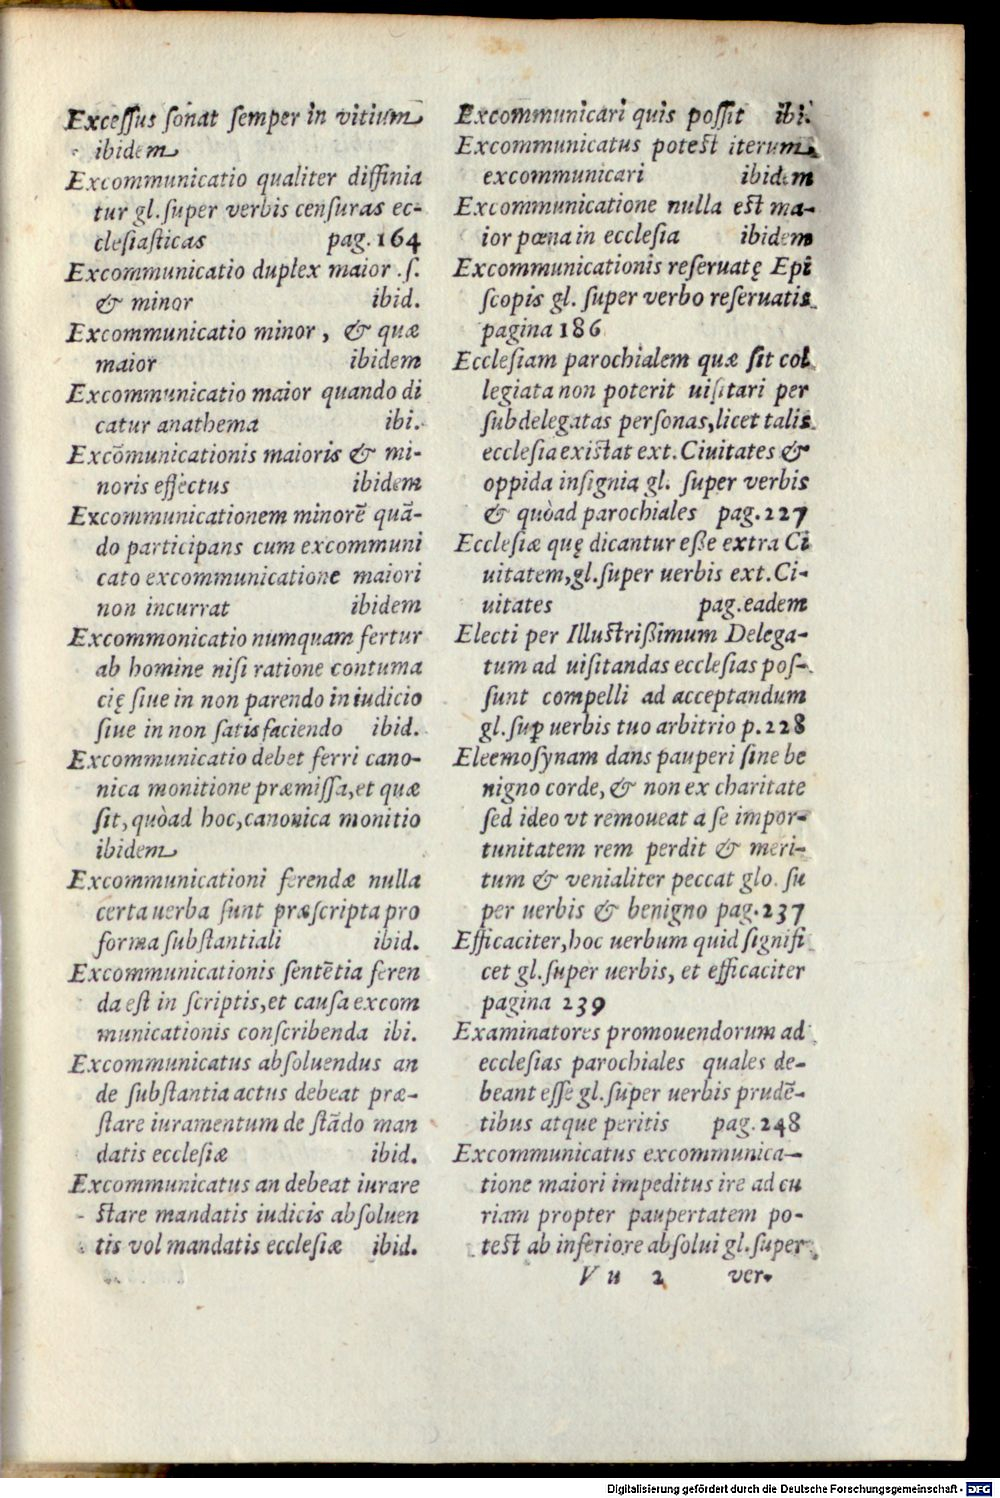 Exceſſus ſonat ſemper in vitium
ibidem
Excommunicatio qualiter diffinia
tur gl. ſuper verbis cenſuras ec-
cleſiaſticas pag. 164
Excommunicatio duplex maior .ſ.
& minor ibid.
Excommunicatio minor, & quæ
maior ibidem
Excommunicatio maior quando di
catur anathema ibi.
Excōmunicationis maioris & mi-
noris effectus ibidem
Excommunicationem minorē quā-
do participans cum excommuni
cato excommunicatione maiori
non incurrat ibidem
Excommonicatio numquam fertur
ab homine niſi ratione contuma
cię ſiue in non parendo in iudicio
ſiue in non ſatisfaciendo ibid.
Excommunicatio debet ferri cano-
nica monitione præmiſſa, et quæ
ſit, quòad hoc, canonica monitio
ibidem
Excommunicationi ferendæ nulla
certa uerba ſunt præſcripta pro
forma ſubſtantiali ibid.
Excommunicationis ſentētia feren
da eſt in ſcriptis, et cauſa excom
municationis conſcribenda ibi.
Excommunicatus abſoluendus an
de ſubſtantia actus debeat præ-
ſtare iuramentum de ſtādo man
datis eccleſiæ ibid.
Excommunicatus an debeat iurare
ſtare mandatis iudicis abſoluen
tis vol mandatis eccleſiæ ibid.
Excommunicari quis poſſit ibi.
Excommunicatus poteſt iterum
excommunicari ibidem
Excommunicatione nulla eſt ma-
ior pœna in eccleſia ibidem
Excommunicationis reſeruatę Epi
ſcopis gl. ſuper verbo reſeruatis
pagina 186
Eccleſiam parochialem quæ ſit col
legiata non poterit uiſitari per
ſubdelegatas perſonas, licet talis
eccleſia exiſtat ext. Ciuitates &
oppida inſignia gl. ſuper verbis
& quòad parochiales pag. 227
Eccleſiæ quę dicantur eſſe extra Ci
uitatem, gl. ſuper uerbis ext. Ci-
uitates pag. eadem
Electi per Illuſtriſſimum Delega-
tum ad uiſitandas eccleſias poſ-
ſunt compelli ad acceptandum
gl. ſuꝑ uerbis tuo arbitrio p. 228
Eleemoſynam dans pauperi ſine be
nigno corde, & non ex charitate
ſed ideo vt remoueat a ſe impor-
tunitatem rem perdit & meri-
tum & venialiter peccat glo. ſu
per uerbis & benigno pag. 237
Efficaciter, hoc uerbum quid ſignifi
cet gl. ſuper uerbis, et efficaciter
pagina 239
Examinatores promouendorum ad
eccleſias parochiales quales de-
beant eſſe gl. ſuper uerbis prudē-
tibus atque peritis pag. 248
Excommunicatus excommunica-
tione maiori impeditus ire ad cu
riam propter paupertatem po-
teſt ab inferiore abſolui gl. ſuper
V u 2 ver.
Digitalisierung gefördert durch die Deutsche Forschungsgemeinschaft - DFG